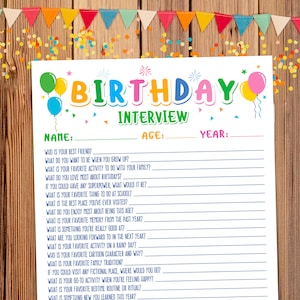 BIRTHDAY
INTERVIEW
NAME: AGE: YEAR:
WHO IS YOUR BEST FRIEND?
WHAT DO YOU WANT TO BE WHEN YOU GROW UP?
WHAT IS YOUR FAVORITE ACTIVITY TO DO WITH YOUR FAMILY?
WHAT DO YOU LOVE MOST ABOUT BIRTHDAYS?
IF YOU COULD HAVE ANY SUPERPOWER, WHAT WOULD IT BE?
WHAT IS YOUR FAVORITE THING TO DO AT SCHOOL?
WHAT IS THE BEST PLACE YOU'VE EVER VISITED?
WHAT DO YOU ENJOY MOST ABOUT BEING THIS AGE?
WHAT IS YOUR FAVORITE MEMORY FROM THE PAST YEAR?
WHAT IS SOMETHING YOU'RE GOOD AT?
WHAT ARE YOU LOOKING FORWARD TO IN THE NEXT YEAR?
WHAT IS YOUR FAVORITE ACTIVITY ON A RAINY DAY?
WHAT IS YOUR FAVORITE CARTOON CHARACTER AND WHY?
WHAT IS YOUR FAVORITE FAMILY TRADITION?
IF YOU COULD VISIT ANY FICTIONAL PLACE, WHERE WOULD YOU GO?
WHAT IS YOUR GO-TO ACTIVITY WHEN YOU'RE FEELING HAPPY?
WHAT IS YOUR FAVORITE BEDTIME ROUTINE OR RITUAL?
WHAT IS SOMETHING NEW YOU LEARNED THIS YEAR?